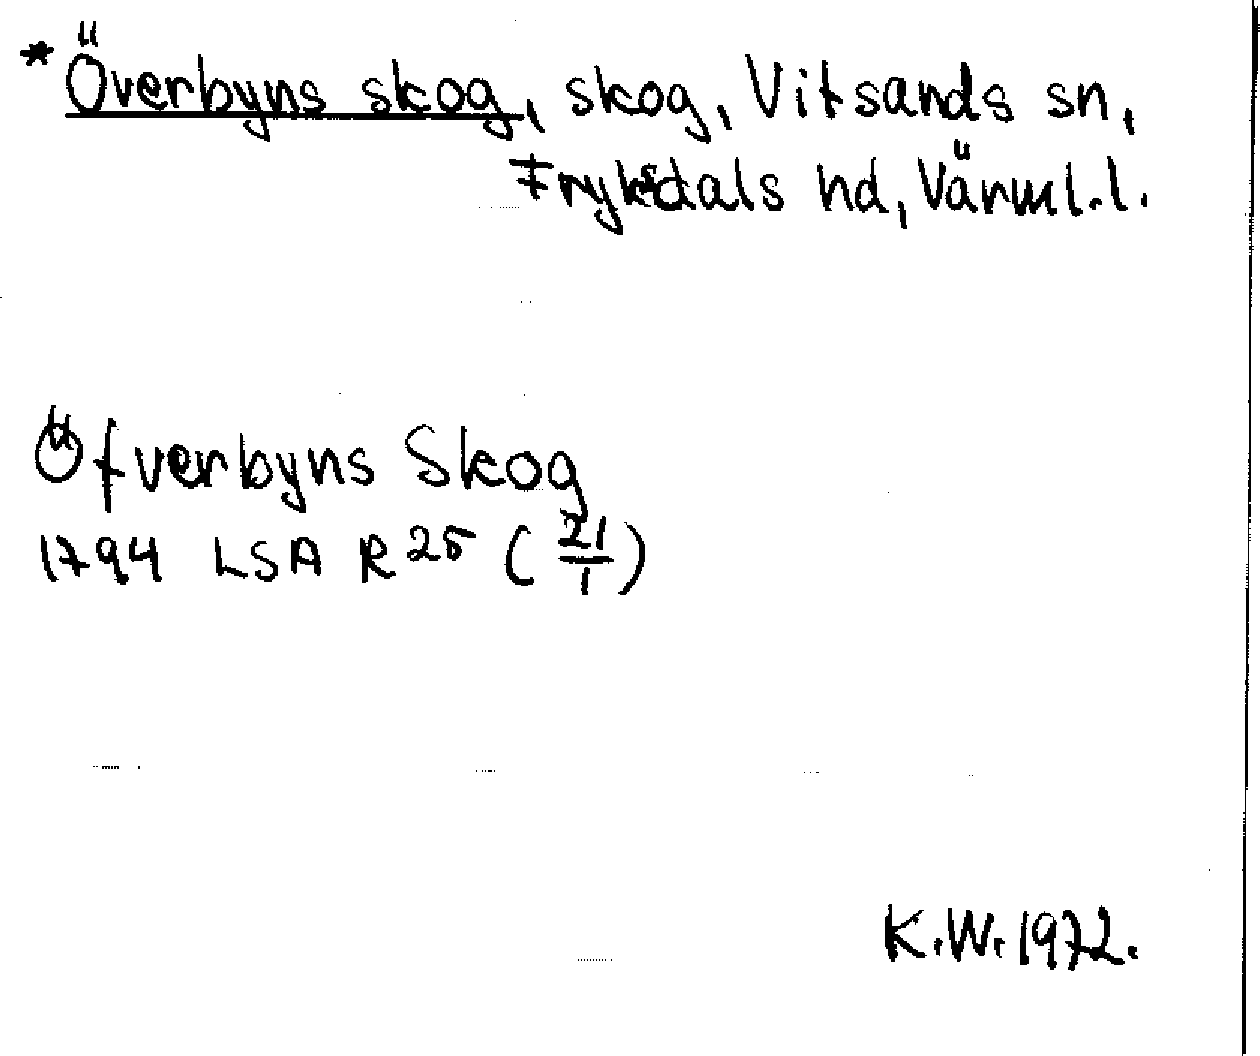 * Överbyns skog, skog, Vitsands sn,
Fryksdals hd, Värml.l.
Öfverbyns Skog
1794 LSA R 25 (21/1)
K.W. 1972.